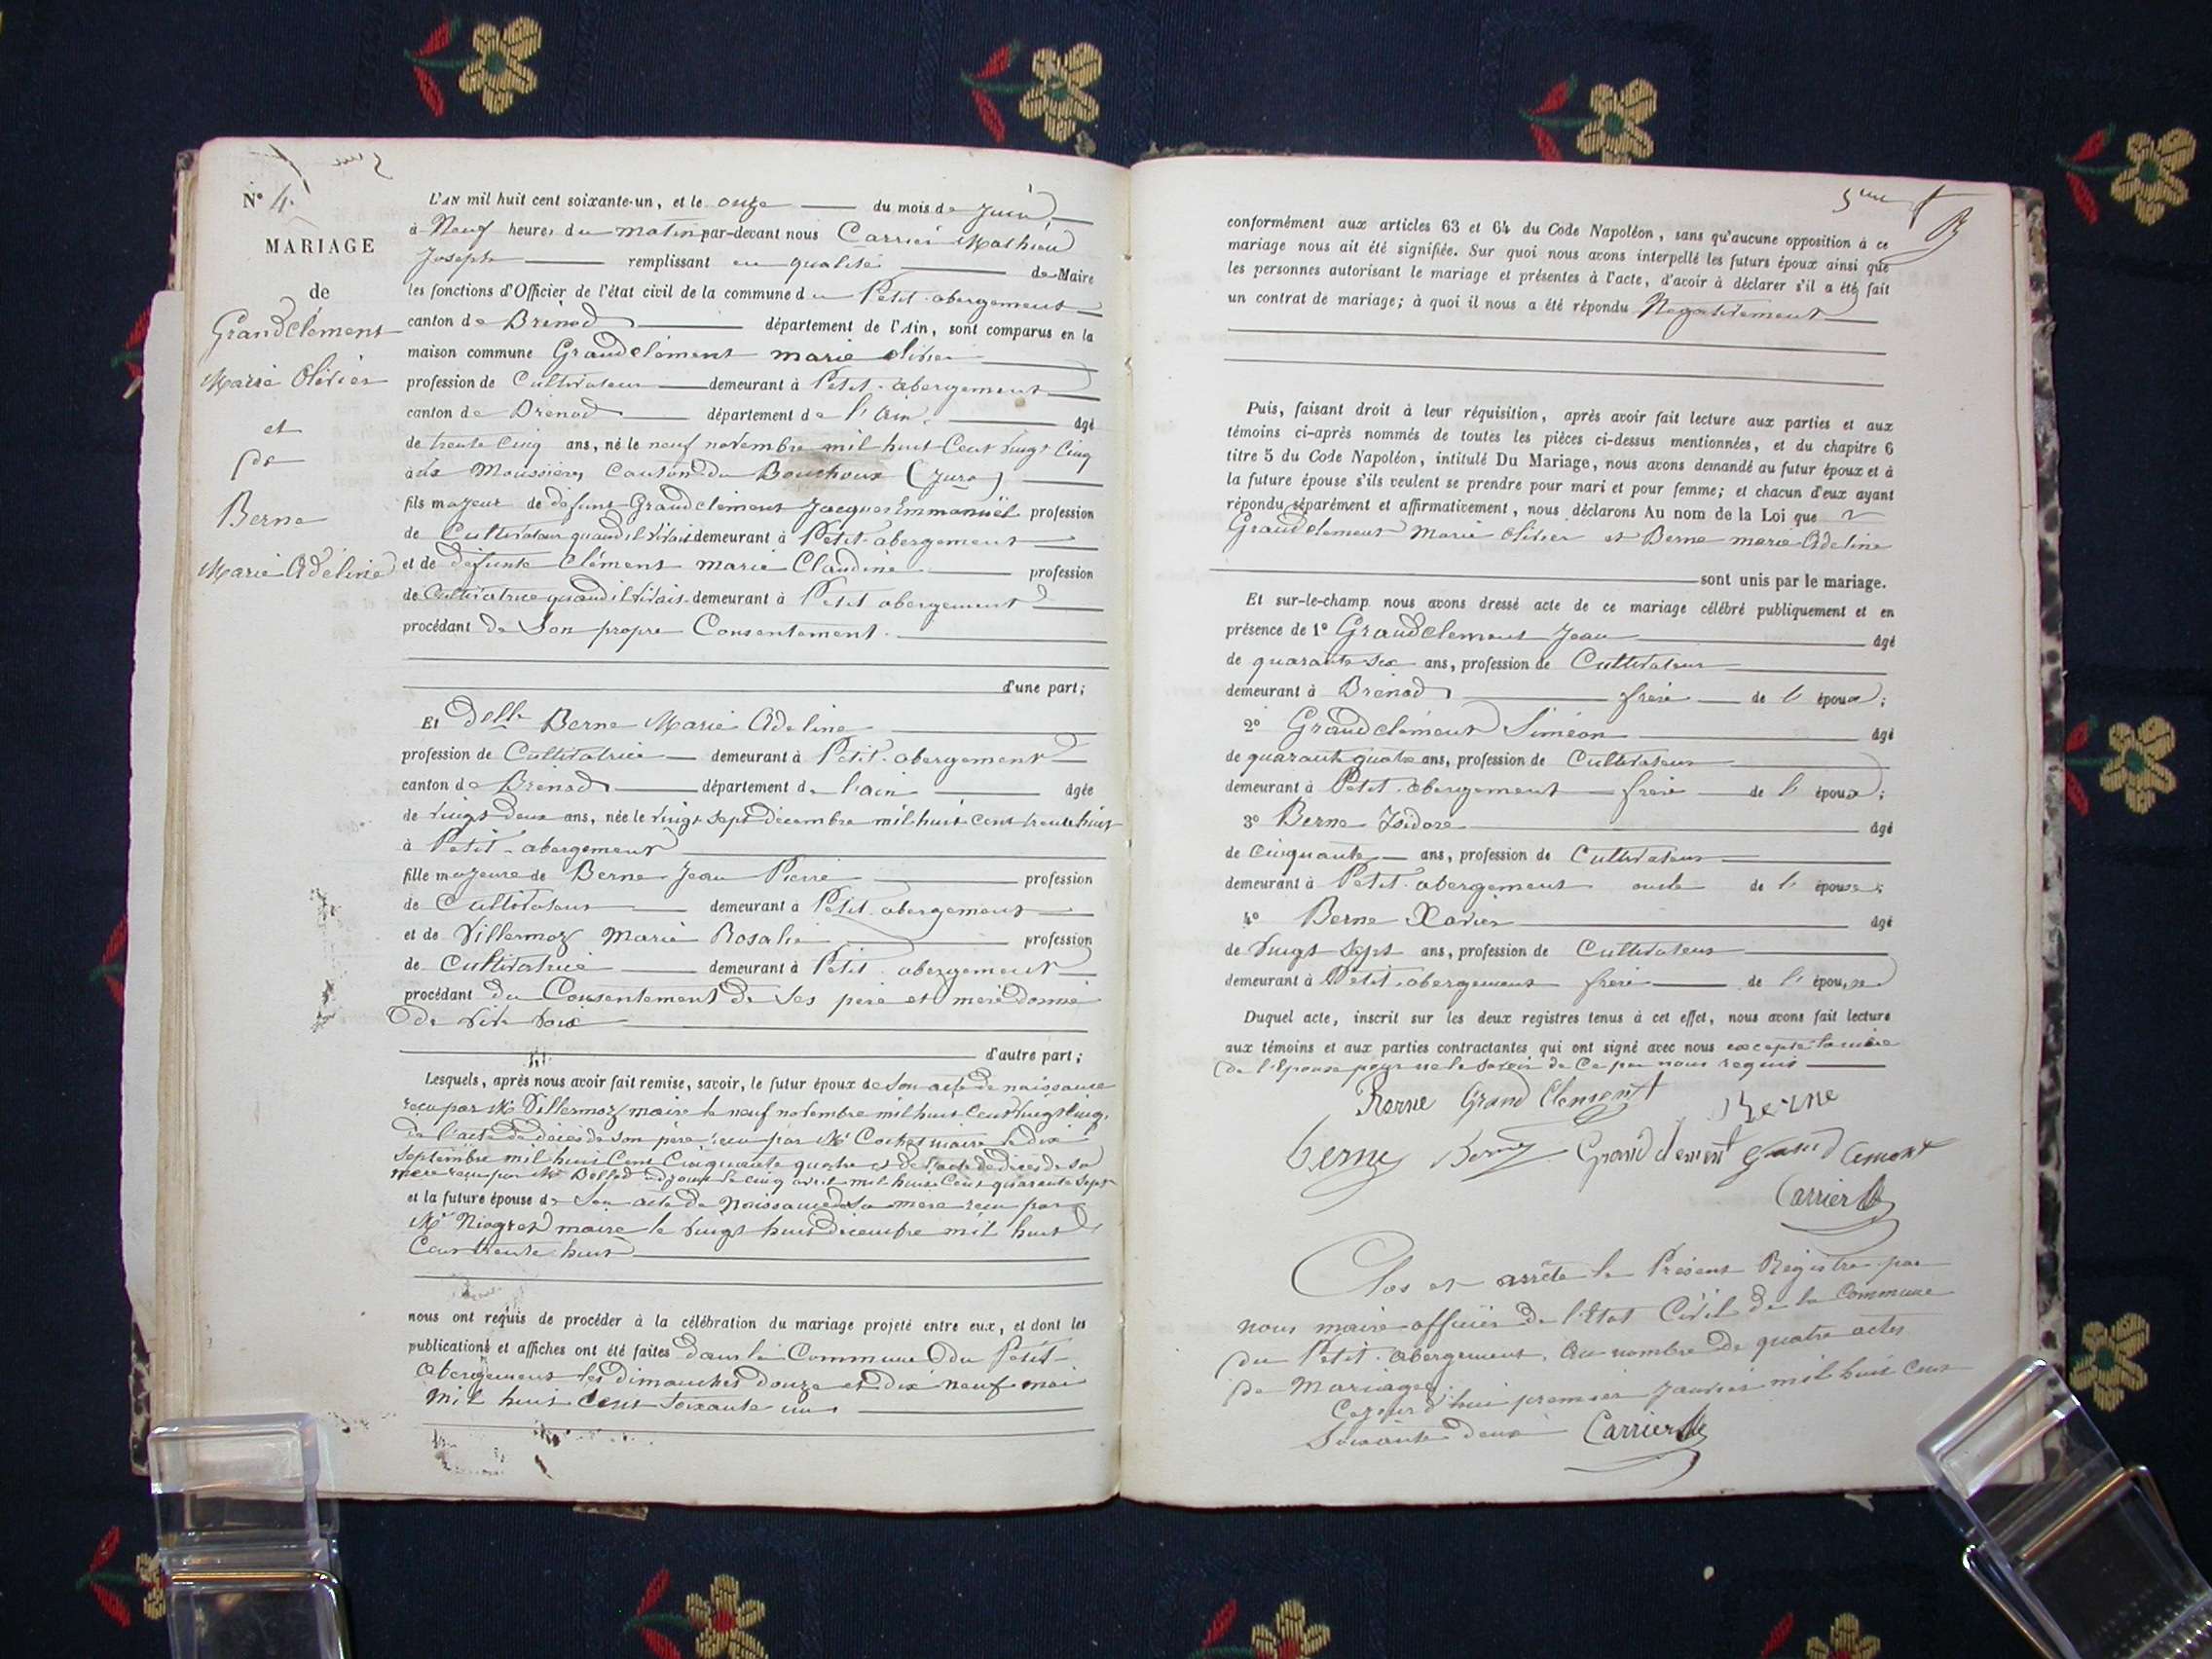 N° 4.
MARIAGE
de
Grandclément
Marie Olivier
et
de
Berne
Marie Adeline
L'AN mil huit cent soixante-un, et le onze du mois de Juin
à Neuf heures du matin par-devant nous Carrier Mathieu
Joseph remplissant en qualité de Maire
les fonctions d'Officier de l'état civil de la commune du Petit-abergement
canton de Brénod département de l'Ain, sont comparus en la
maison commune Grandclément marie olivier
profession de Cultivateur demeurant à Petit-abergement
canton de Brénod département de l'Ain âgé
de trente cinq ans, né le neuf novembre mil huit Cent vingt cinq
aux Moussières, Canton du Bouchoux (Jura)
fils majeur de défunt Grandclément Jacques Emmanuël profession
de Cultivateur quand il vivait demeurant à Petit-abergement
et de défunte Clément marie Claudine profession
de Cultivatrice quand il vivait demeurant à Petit abergement
procédant de Son propre Consentement.
d'une part;
Et delle Berne Marie Adeline
profession de Cultivatrice demeurant à Petit-abergement
canton de Brénod département de l'ain âgée
de vingt deux ans, née le vingt sept décembre mil huit cent trente huit
à Petit-abergement
fille majeure de Berne Jean Pierre profession
de Cultivateur demeurant à Petit-abergement
et de Villermoz Marie Rosalie profession
de Cultivatrice demeurant à Petit abergement
procédant du Consentement de Ses père et mère donné
de vive voix
d'autre part;
Lesquels, après nous avoir fait remise, savoir, le futur époux de Son acte de naissance
reçu par Mr Villermoz maire le neuf novembre mil huit Cent vingt cinq,
de l'acte de décès de son père reçu par Mr Cochet maire le dix
Septembre mil huit Cent Cinquante quatre et de l'acte de décès de sa
mère reçu par Mr adjoint le cinq avril mil huit Cent quarante sept
et la future épouse de Son acte de Naissance de Sa mère reçu par
Mr Niogret maire le vingt huit décembre mil huit
Cent trente huit
nous ont requis de procéder à la célébration du mariage projeté entre eux, et dont les
publications et affiches ont été faites dans la Commune du Petit-
Abergement les dimanches douze et dix neuf mai
mil huit Cent Soixante un
5me
conformément aux articles 63 et 64 du Code Napoléon, sans qu'aucune opposition à ce
mariage nous ait été signifiée. Sur quoi nous avons interpellé les futurs époux ainsi que
les personnes autorisant le mariage et présentes à l'acte, d'avoir à déclarer s'il a été fait
un contrat de mariage; à quoi il nous a été répondu Négativement
Puis, faisant droit à leur réquisition, après avoir fait lecture aux parties et aux
témoins ci-après nommés de toutes les pièces ci-dessus mentionnées, et du chapitre 6
titre 5 du Code Napoléon, intitulé Du Mariage, nous avons demandé au futur époux et à
la future épouse s'ils veulent se prendre pour mari et pour femme; et chacun d'eux ayant
répondu séparément et affirmativement, nous déclarons Au nom de la Loi que
Grandclement Marie Olivier et Berne marie Adeline
sont unis par le mariage.
Et sur-le-champ nous avons dressé acte de ce mariage célébré publiquement et en
présence de 1° Grandclement Jean âgé
de quarante six ans, profession de Cultivateur
demeurant à Brénod frère de l'époux;
2° Grandclément Siméon âgé
de quarante quatre ans, profession de Cultivateur
demeurant à Petit-abergement frère de l'époux;
3° Berne Isidore âgé
de Cinquante ans, profession de Cultivateur
demeurant à Petit-abergement oncle de l'épouse;
4° Berne Xavier âgé
de vingt sept ans, profession de Cultivateur
demeurant à Petit-abergement frère de l'épouse
Duquel acte, inscrit sur les deux registres tenus à cet effet, nous avons fait lecture
aux témoins et aux parties contractantes qui ont signé avec nous excepté la mère
de l'épouse pour ne le savoir de Ce par nous requis
Berne Grand Clement Berne
Berne Berne Grand clement Grand clement
Carrier
Clos et arrêté le Présent Régistre par
nous maire officier de l'état Civil de la Commune
du Petit-abergement, Au nombre de quatre actes
de Mariages.
Cejourd'hui premier Janvier mil huit Cent
Soixante deux Carrier